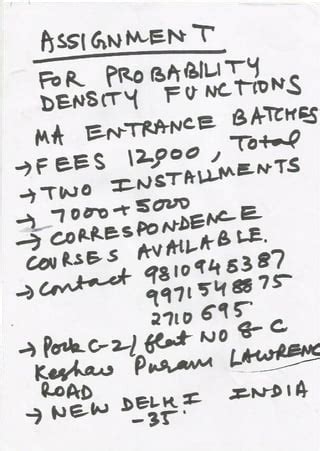 ASSIGNMENT
FOR PROBABILITY
DENSITY FUNCTIONS
MA ENTRANCE BATCHES
→ FEES 12,000, Total
→ TWO INSTALLMENTS
→ 7000 + 5000
→ CORRESPONDENCE
COURSES AVAILABLE.
→ Contact 9810945387
9971548875
2710695
→ Pock C-2/ flat NO 8-C
Keshav Puram LAWRENC
ROAD
→ NEW DELHI INDIA
-35.